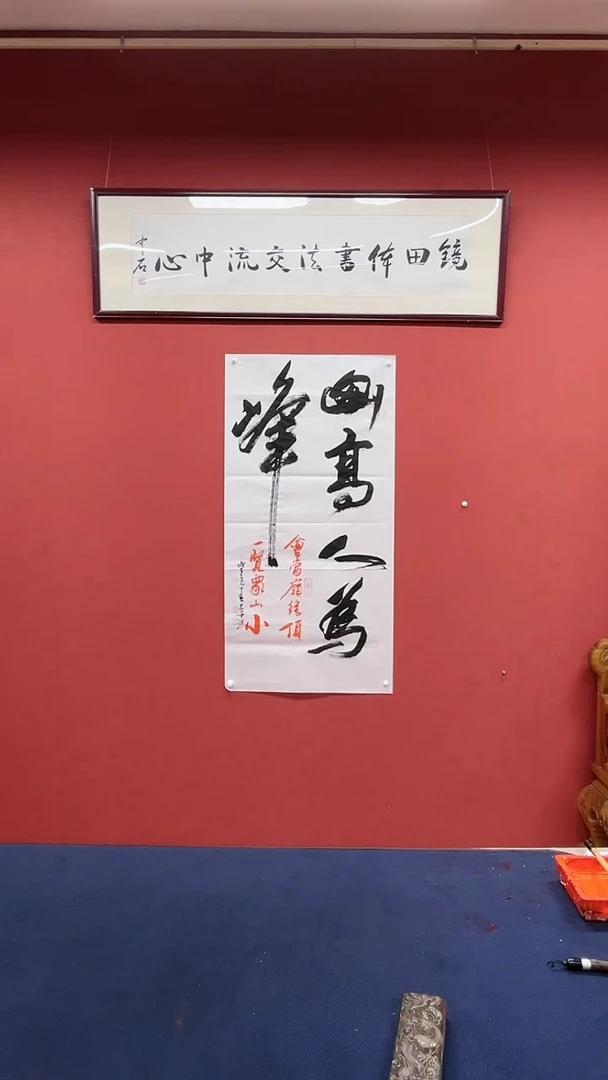 鏡田体書法交流中心
中石
山高人為
峰
會當嶺絕頂
一覽眾山小